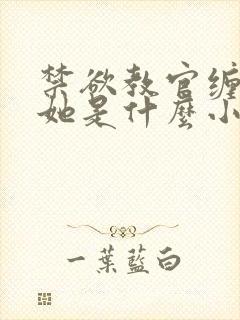 禁欲教官缠
她是什麼小
一葉藍白